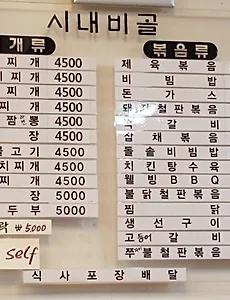 시내비골
개류
찌개 4500
찌개 4500
찌개 4500
찌개 4500
짬뽕 4500
장 4500
불고기 4500
치찌개 4500
찌개 4500
장 5000
두부 5000
락 ₩5,000
self
볶음류
제육볶음
비빔밥
돈가스
돼지철판볶음
갈비
잡채볶음
돌솥비빔밥
치킨탕수육
웰빙BBQ
불닭철판볶음
찜닭
생선구이
고등어갈비
쭈불철판볶음
식사포장배달